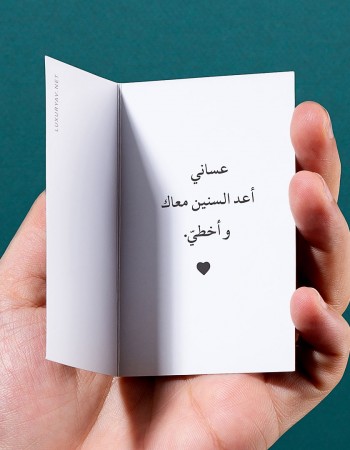 عساني
أعد السنين معاك
و أخطيّ.